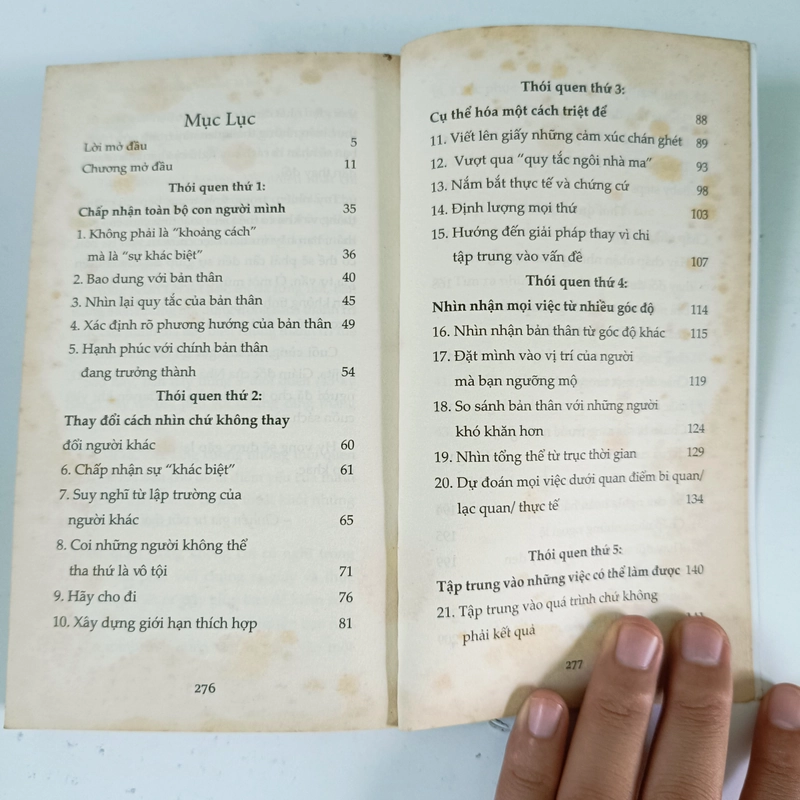 Mục Lục
Lời mở đầu 5
Chương mở đầu 11
Thói quen thứ 1:
Chấp nhận toàn bộ con người mình 35
1. Không phải là “khoảng cách”
mà là “sự khác biệt” 36
2. Bao dung với bản thân 40
3. Nhìn lại quy tắc của bản thân 45
4. Xác định rõ phương hướng của bản thân 49
5. Hạnh phúc với chính bản thân
đang trưởng thành 54
Thói quen thứ 2:
Thay đổi cách nhìn chứ không thay
đổi người khác 60
6. Chấp nhận sự “khác biệt” 61
7. Suy nghĩ từ lập trường của
người khác 65
8. Coi những người không thể
tha thứ là vô tội 71
9. Hãy cho đi 76
10. Xây dựng giới hạn thích hợp 81
276
Thói quen thứ 3:
Cụ thể hóa một cách triệt để 88
11. Viết lên giấy những cảm xúc chán ghét 89
12. Vượt qua “quy tắc ngôi nhà ma” 93
13. Nắm bắt thực tế và chứng cứ 98
14. Định lượng mọi thứ 103
15. Hướng đến giải pháp thay vì chỉ
tập trung vào vấn đề 107
Thói quen thứ 4:
Nhìn nhận mọi việc từ nhiều góc độ 114
16. Nhìn nhận bản thân từ góc độ khác 115
17. Đặt mình vào vị trí của người
mà bạn ngưỡng mộ 119
18. So sánh bản thân với những người
khó khăn hơn 124
19. Nhìn tổng thể từ trục thời gian 129
20. Dự đoán mọi việc dưới quan điểm bi quan/
lạc quan/ thực tế 134
Thói quen thứ 5:
Tập trung vào những việc có thể làm được 140
21. Tập trung vào quá trình chứ không
phải kết quả
277